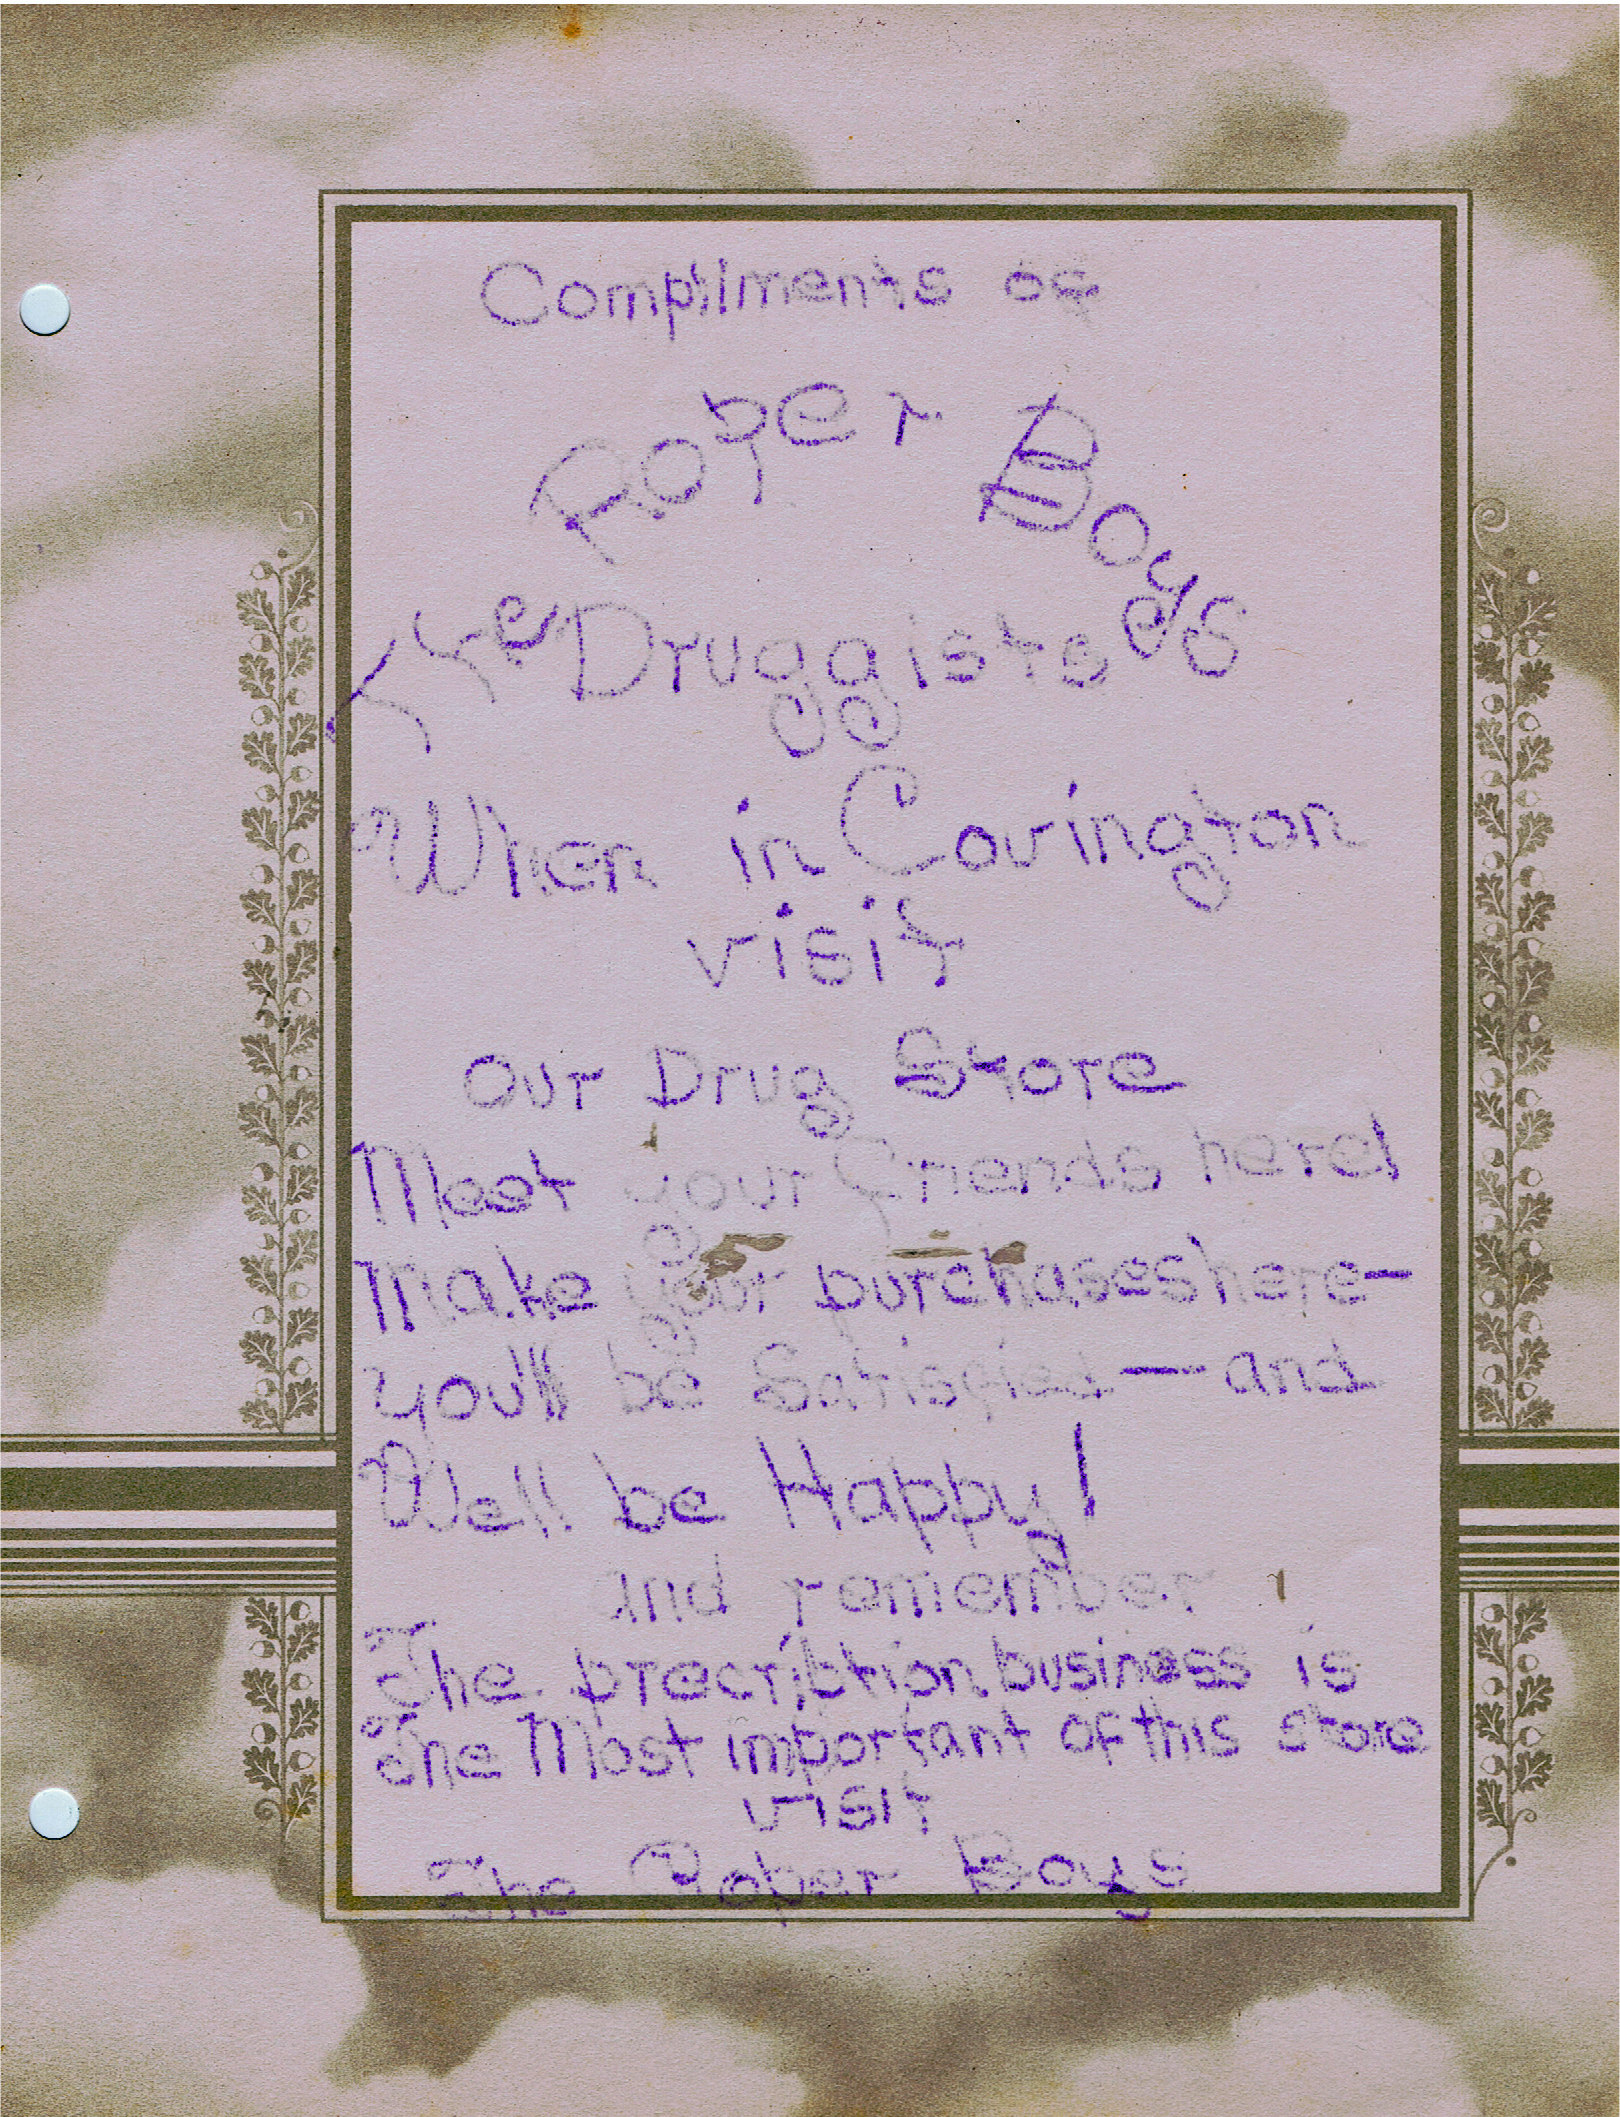 Compliments of
Roper Boys
The Druggists
When in Covington
visit
Our Drug Store
Meet your Friends here!
Make your purchases here—
you'll be Satisfied — and
Well be Happy!
and remember
The precription business is
The Most important of this store
visit
The Roper Boys